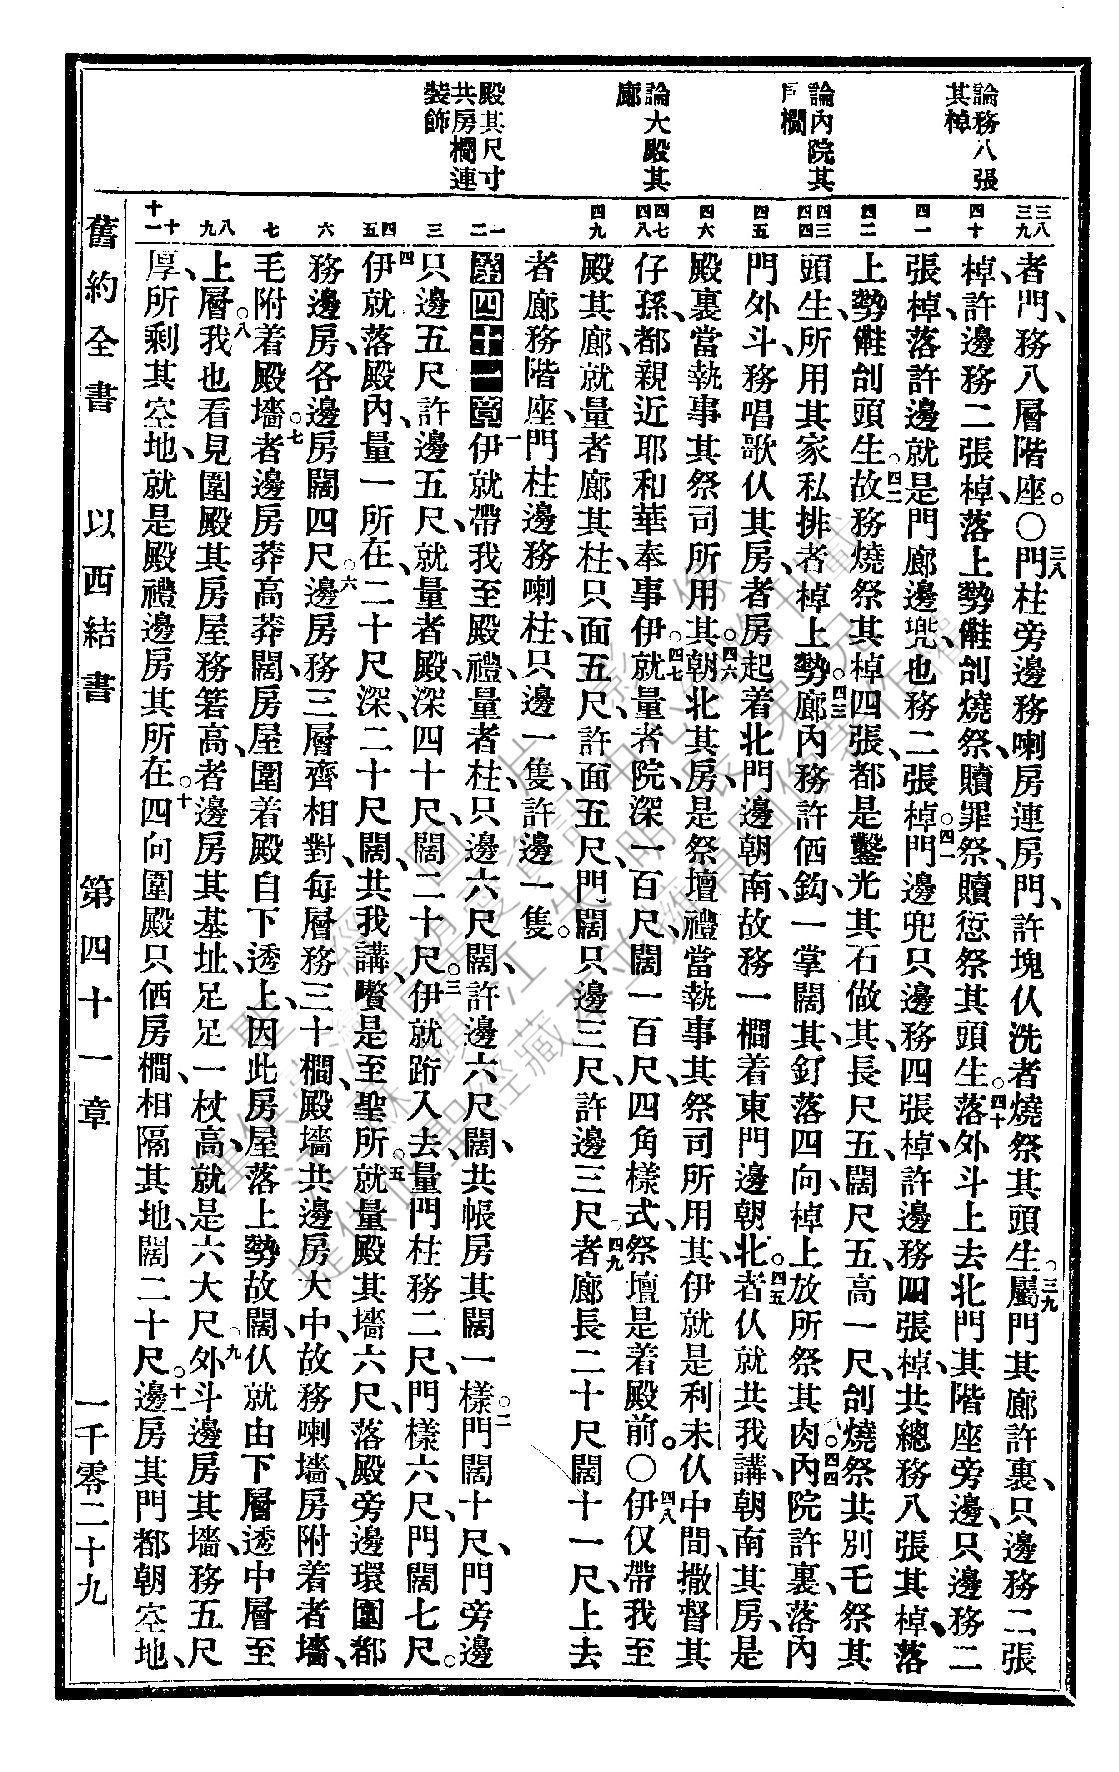 論務八張
其棹
論內院其
房櫊
論大殿其
廊
殿其尺寸
共房櫊連
裝飾
三八
三九
四十
四一
四二
四三
四四
四五
四六
四七
四八
四九
一
二
三
四
五
六
七
八
九
十
十一
者門、務八層階座。〇三八門柱旁邊務喇房連房門、許塊仈洗者燒祭其頭生。三九屬門其廊許裏、只邊務二張
棹、許邊務二張棹、落上勢儺刣燒祭、贖罪祭、贖愆祭其頭生。四十落外斗上去北門其階座旁邊、只邊務二
張棹、落許邊就是門廊邊兜也務二張棹。四一門邊兜只邊務四張棹、許邊務四張棹、共總務八張其棹、落
上勢儺刣頭生。四二故務燒祭其棹四張、都是鑿光其石做其、長尺五、闊尺五、高一尺、刣燒祭共別乇祭其
頭生、所用其家私排者棹上勢。四三廊內務許俩鈎一掌闊其、釘落四向、棹上放所祭其肉。四四內院許裏、落內
門外斗、務唱歌仈其房、者房起着北門邊朝南、故務一櫊着東門邊朝北。四五者仈就共我講、朝南其房、是
殿裏當執事其祭司所用其。四六朝北其房、是祭壇禮當執事其祭司所用其、伊就是利未仈中間撒督其
仔孫、都親近耶和華奉事伊。四七就量者院、深一百尺、闊一百尺、四角樣式、祭壇是着殿前。〇四八伊仅帶我至
殿其廊、就量者廊其柱、只面五尺、許面五尺、門闊只邊三尺、許邊三尺。四九者廊長二十尺、闊十一尺、上去
者廊務階座、門柱邊務喇柱、只邊一隻、許邊一隻。
第四十一章一伊就帶我至殿禮、量者柱、只邊六尺闊、許邊六尺闊、共帳房其闊一樣。二門闊十尺、門旁邊
只邊五尺、許邊五尺、就量者殿、深四十尺、闊二十尺。三伊就跻入去、量門柱務二尺、門樣六尺、門闊七尺。
四伊就落殿內、量一所在、二十尺深、二十尺闊、共我講、嚽是至聖所。五就量殿其墻六尺、落殿旁邊環圍都
務邊房、各邊房闊四尺。六邊房務三層齊相對、每層務三十櫊、殿墻共邊房大中、故務喇墻、房附着者墻、
乇附着殿墻。七者邊房莽高莽闊、房屋圍着殿自下透上、因此房屋落上勢故闊、仈就由下層透中層至
上層。八我也看見圍殿其房屋務箬高、者邊房其基址、足足一杖高、就是六大尺。九外斗邊房其墻、務五尺
厚、所剩其空地、就是殿禮邊房其所在。十四向圍殿只俩房櫊、相隔其地、闊二十尺。十一邊房其門都朝空地、
舊約全書　以西結書　第四十一章　一千零二十九